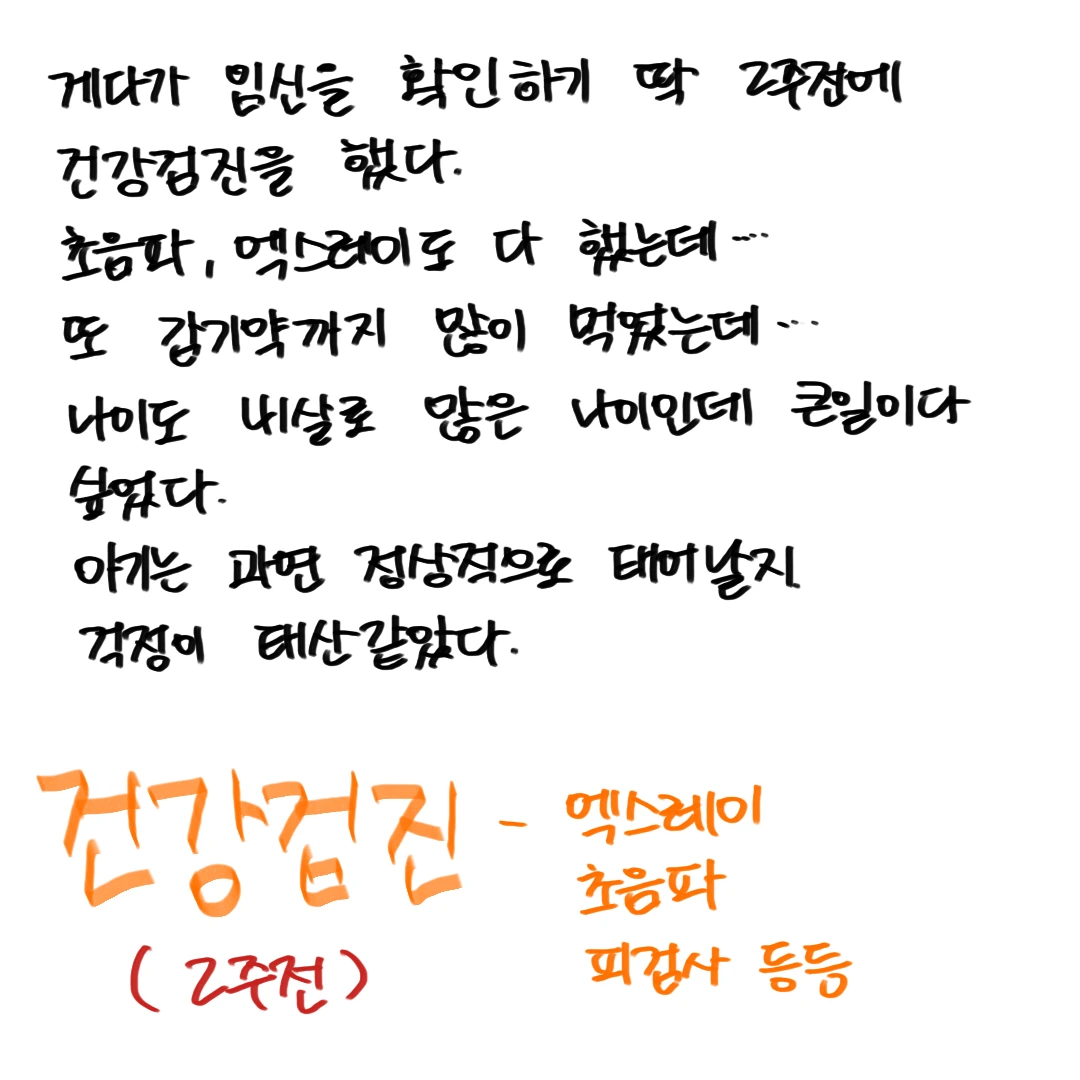 게다가 임신을 확인하기 딱 2주전에
건강검진을 했다.
초음파, 엑스레이도 다 했는데...
또 감기약까지 많이 먹었는데...
나이도 내살로 많은 나이인데 큰일이다
싶었다.
아기는 과연 정상적으로 태어날지
걱정이 태산같았다.
건강검진 - 엑스레이
초음파
(2주전) 피검사 등등